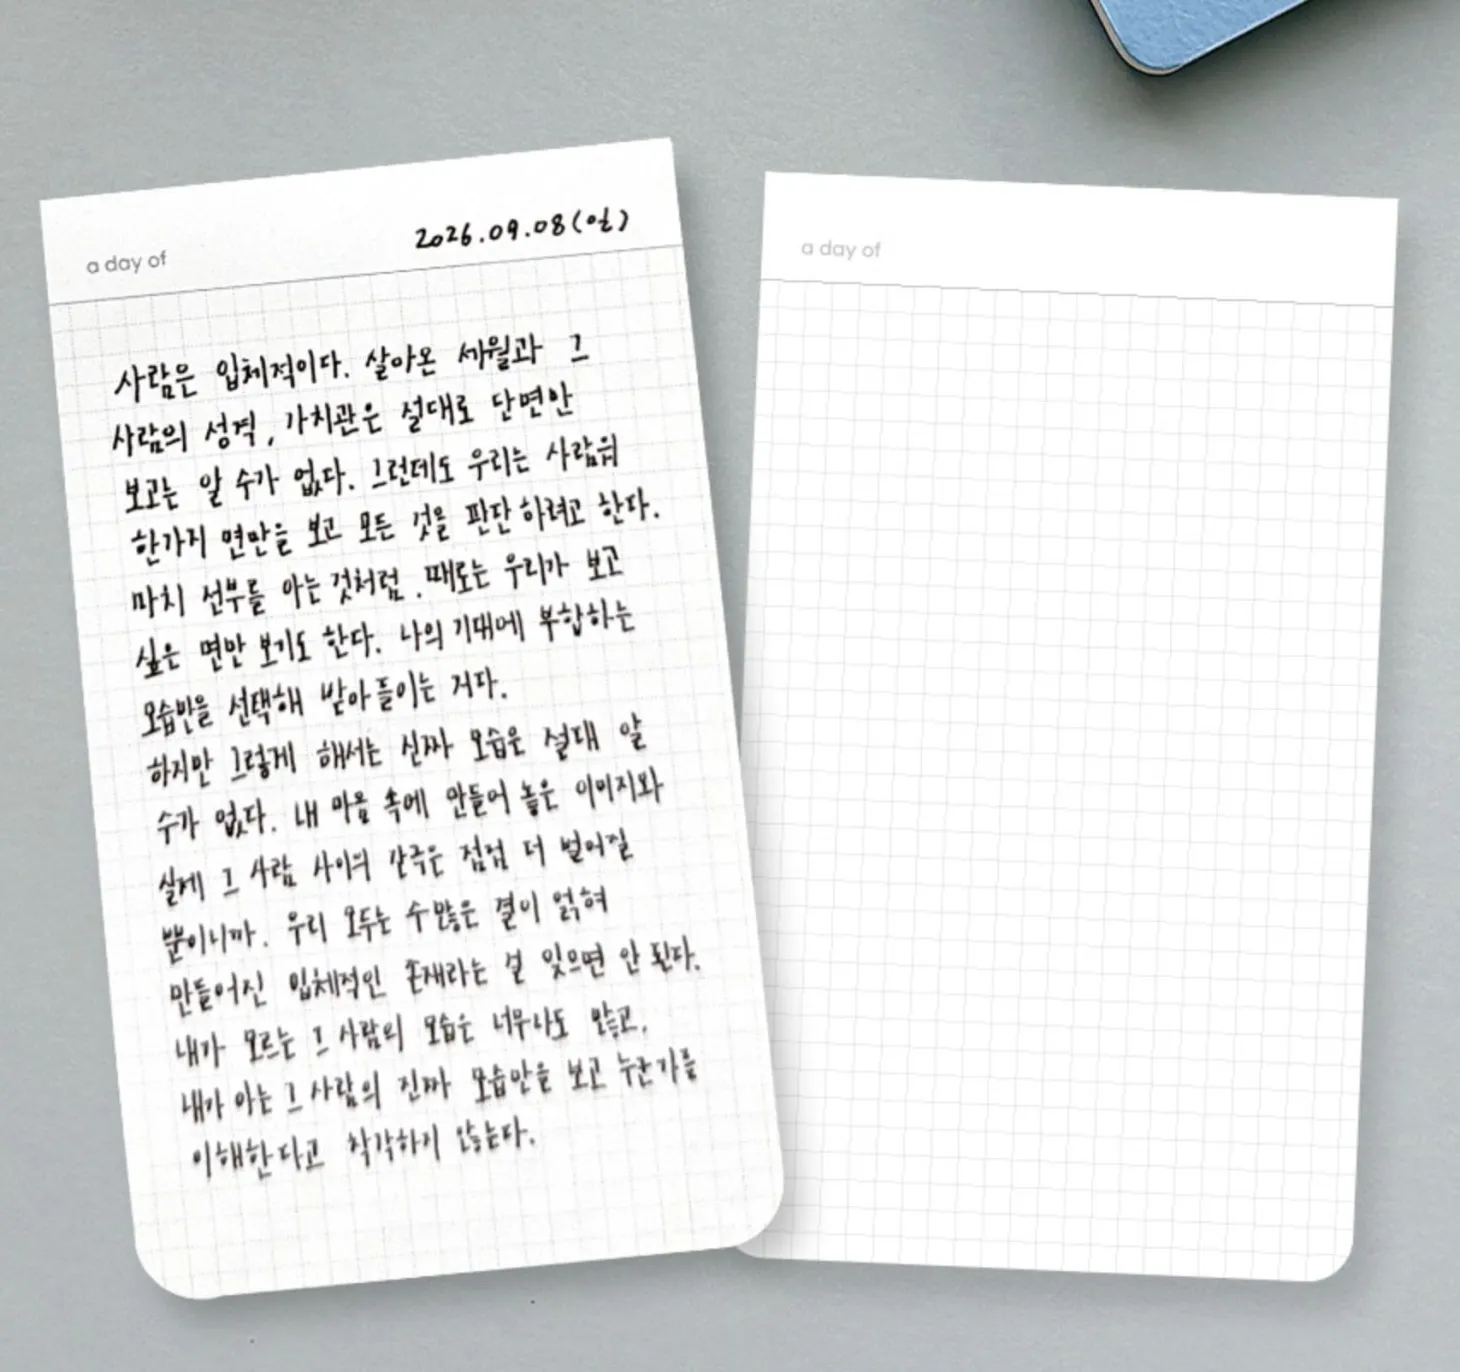 a day of
2026.09.08(일)
사람은 입체적이다. 살아온 세월과 그
사람의 성격, 가치관은 절대로 단면만
보고는 알 수가 없다. 그런데도 우리는 사람의
한가지 면만을 보고 모든 것을 판단하려고 한다.
마치 전부를 아는 것처럼. 때로는 우리가 보고
싶은 면만 보기도 한다. 나의 기대에 부합하는
모습만을 선택해 받아들이는 거다.
하지만 그렇게 해서는 진짜 모습은 절대 알
수가 없다. 내 마음 속에 만들어 놓은 이미지와
실제 그 사람 사이의 간극은 점점 더 벌어질
뿐이니까. 우리 모두는 수많은 결이 얽혀
만들어진 입체적인 존재라는 걸 잊으면 안 된다.
내가 모르는 그 사람의 모습은 너무나도 많고,
내가 아는 그 사람의 진짜 모습만을 보고 누군가를
이해한다고 착각하지 않는다.
a day of